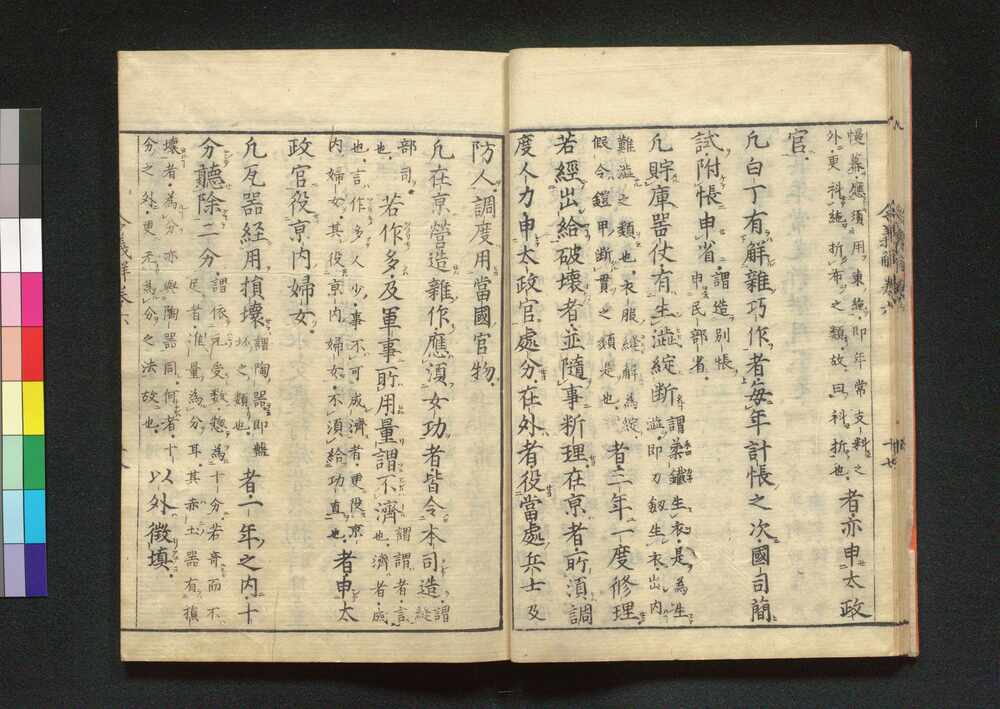 慢幕應須用東絁即年常支料之
外更科絁折布之類故曰科折也 者亦申太政
官
凢白丁有解雜巧作者每年計帳之次國司簡
試附帳申省 謂造別帳
申民部省
凢貯庫器仗有生澁綻斷 謂藁鐵生衣是為生
澁即刀釼生衣出內
難澁之類也衣服縫解為綻
假令鎧甲斷貫之類是也 者三年一度修理
若經出給破壞者並隨事斷理在京者所須調
度人力申太政官處分在外者役當處兵士及
防人調度用當國官物
凢在京營造雜作應須女功者皆令本司造 謂
縫
部司
也 若作多及軍事所用量謂不濟 謂謂者言
也濟者成
也言作多人少事不可成濟者更役京
內婦女其役京內婦女不須給功直也 者申太
政官役京內婦女
凢瓦器經用損壞 謂陶器即盤
坏之類也 者一年之內十
分聽除二分 謂依元受數惣為十分若奇而不
民者准量為分耳其赤土器有損
壞者為分亦與陶器同何者十
分之外更无為分之法故也 以外徵填